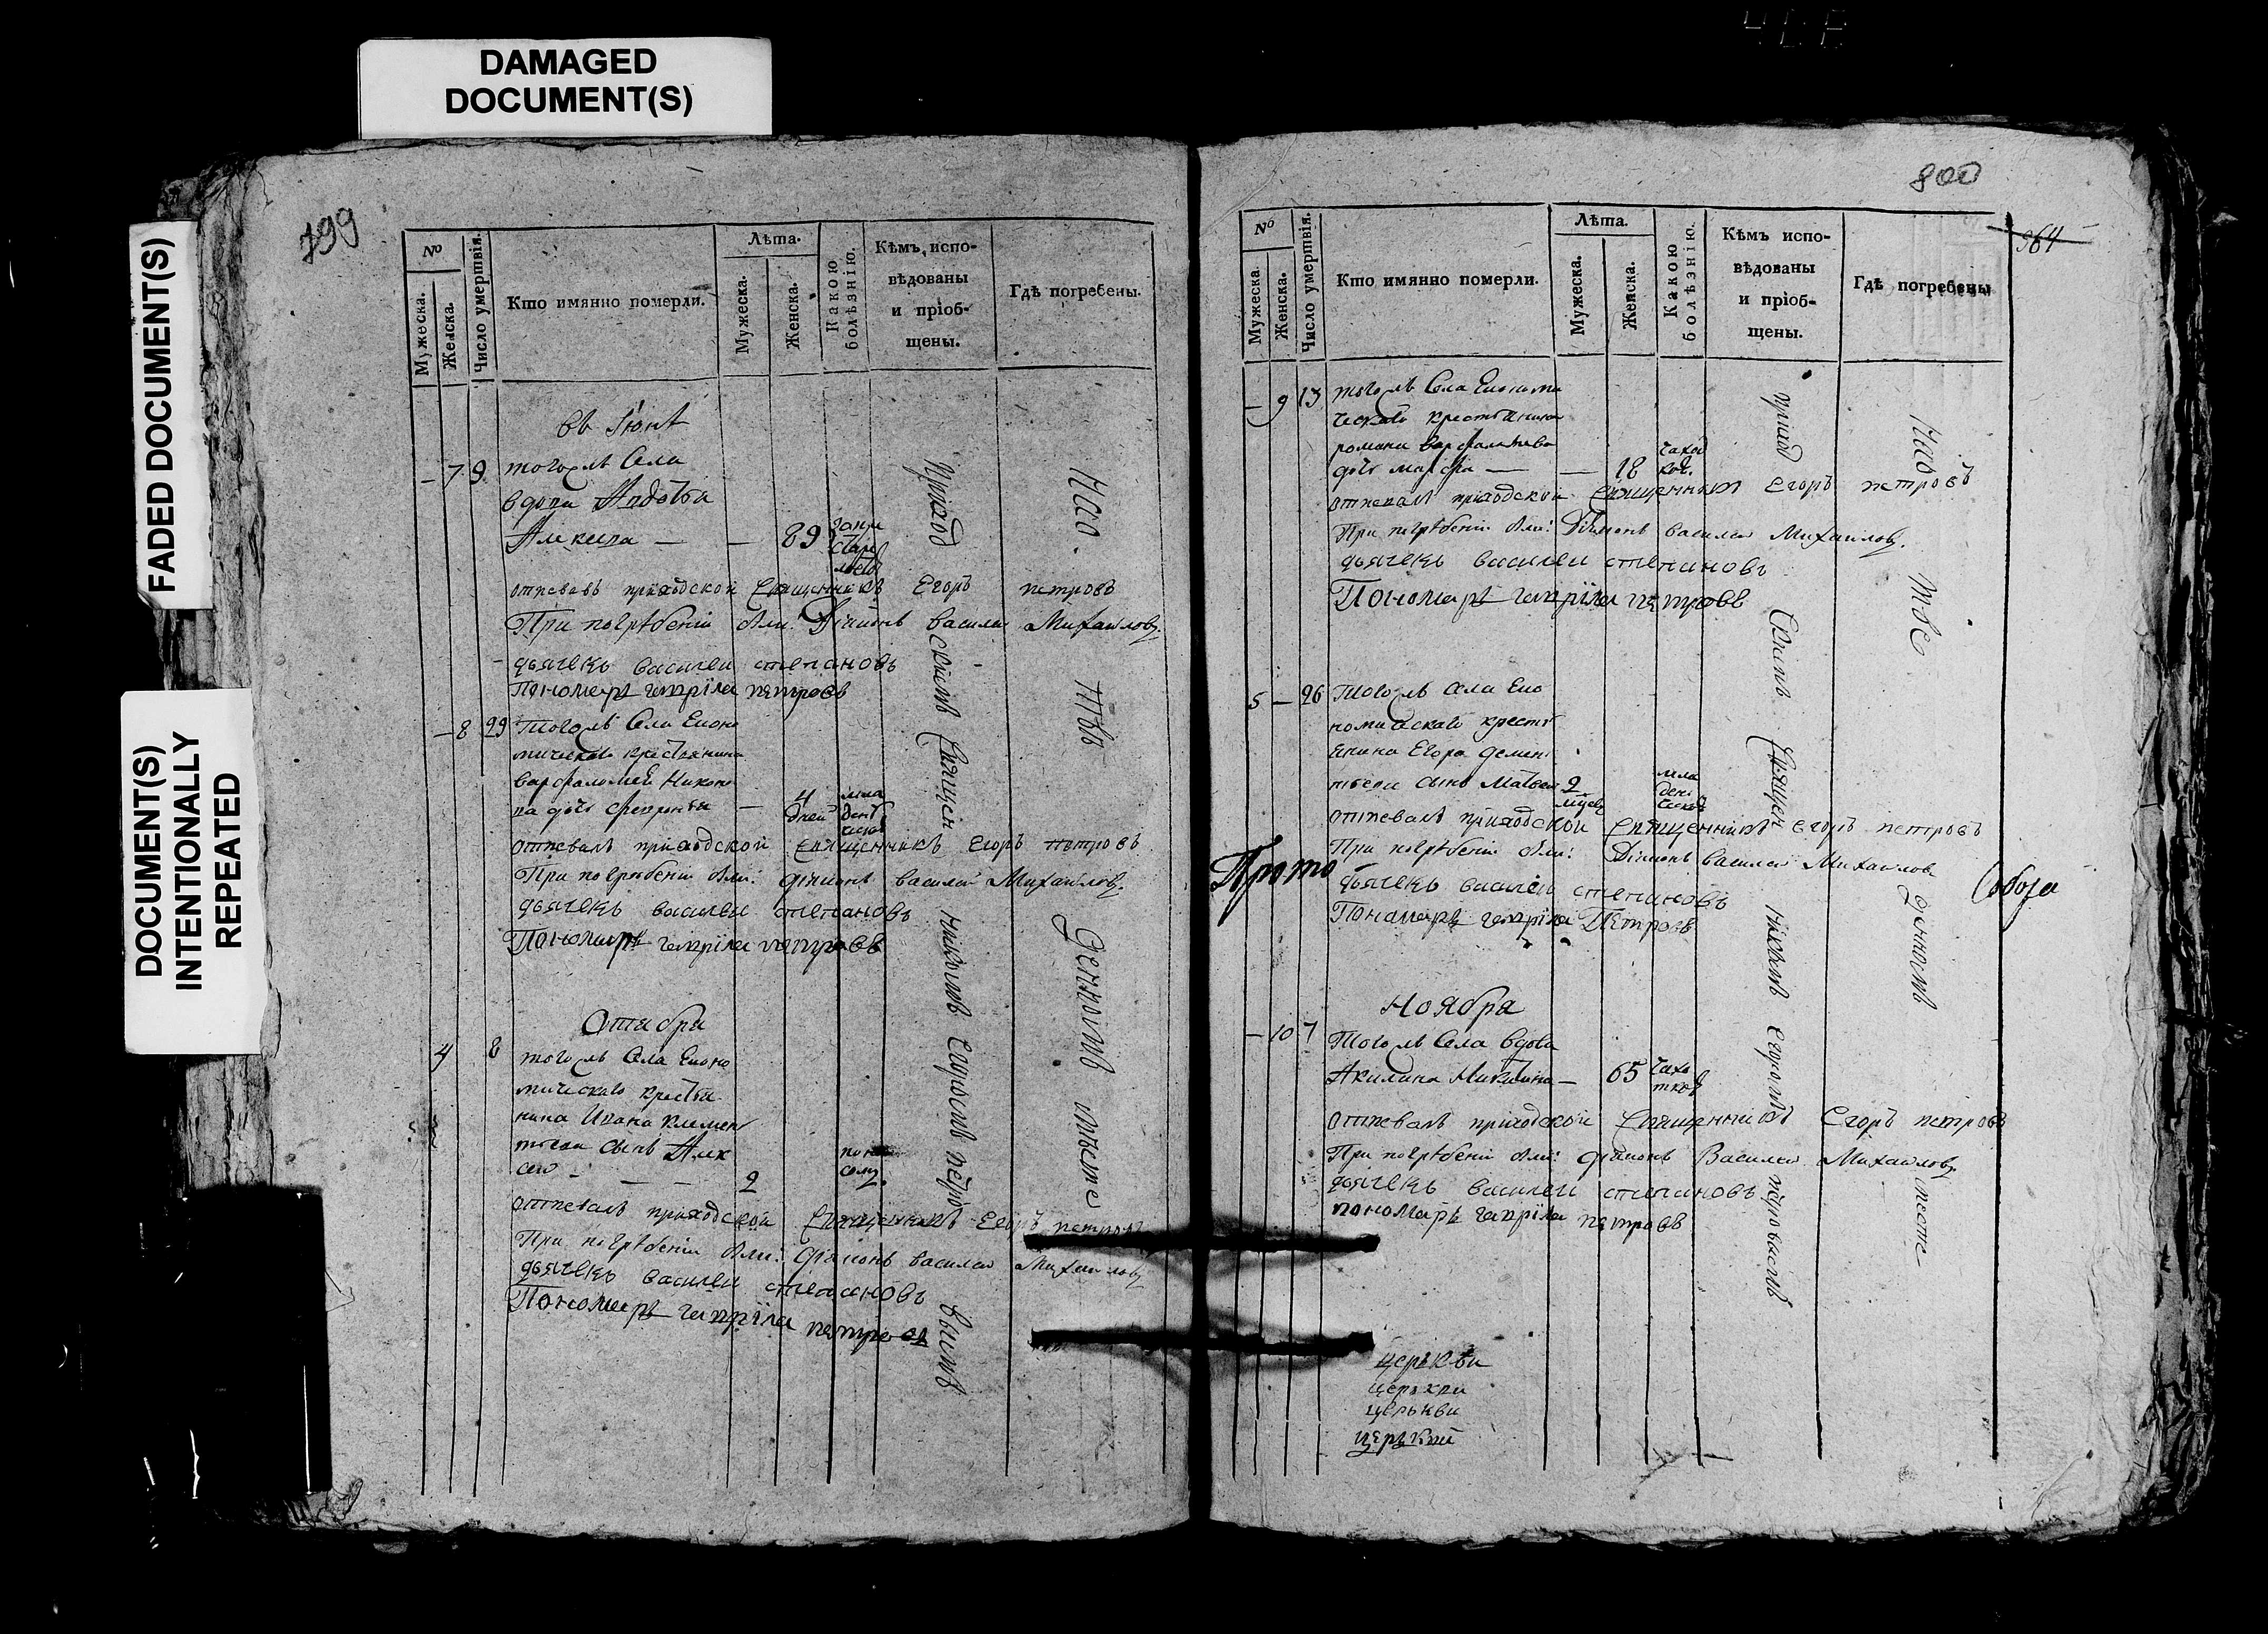 DAMAGED
DOCUMENT(S)
FADED DOCUMENT(S)
DOCUMENT(S)
INTENTIONALLY
REPEATED
799
№
Мужеска.
Женска.
Число умертвія.
Кто имянно померли.
Лѣта.
Мужеска.
Женска.
Какою
болѣзнію.
Кѣмъ испо-
вѣдованы
и пріоб-
щены.
Гдѣ погребены.
въ Іюнѣ
– 7 9 тогожъ Села
вдова Авдотья
– – 89
отпевалъ приходской Священникъ Егоръ петровъ
При погрѣбеніи были: Діяконъ василей Михаиловъ.
дьячекъ василеи степановъ
Пономарь гаврiла петровъ
– 8 29 Тогожъ Села Еконо
мическаго крестьянина
варфаломея Никоно
ва дочь – 4 дней мла
денч
ческою
отпевалъ приходской священникъ Егоръ петровъ
При погрѣбеніи были: діяконъ василей Михаиловъ.
дьячекъ василеи степановъ
Пономарь гаврiла петровъ
Октября
4 8 тогожъ Села Еконо
мическаго крестья
нина Ивана клемен
тьева сынъ Алек
сей – – – 2
отпевалъ приходской священникъ Егоръ петровъ
При погрѣбеніи были: діяконъ василей Михаиловъ
дьячекъ василеи степановъ
Пономарь гаврiла петровъ
приход скимъ Священ никомъ Егоромъ петро вымъ
на отве денномъ месте
800
364
№
Мужеска.
Женска.
Число умертвія.
Кто имянно померли.
Лѣта.
Мужеска.
Женска.
Какою
болѣзнію.
Кѣмъ испо-
вѣдованы
и пріоб-
щены.
Гдѣ погребены
– 9 13 тогожъ Села Економи
ческаго крестьянина
романа варфаламеева
дочь марфа – – 18 чахо
ткой.
отпевалъ приходской Священникъ Егоръ петровъ
При погрѣбеніи были: Діяконъ василей Михаиловъ.
дьячекъ василеи степановъ
Пономарь гаврiла петровъ
5 – 26 Тогожъ села Еко
номическаго кресть
янина Егора демен
тьева сынъ Матвей 2 мла
ден
ческою
отпевалъ приходской Священникъ Егоръ петровъ
При погрѣбеніи были: Діяконъ василей Михаиловъ
дьячекъ василеи степановъ
Пономарь гаврiла Петровъ
Прото
Собора
Ноября
– 10 7 Тогожъ Села вдова
Акилина Никитина – 65 чахо
ткой
отпевалъ приходской Священникъ Егоръ петровъ
При погрѣбеніи были: діяконъ Василей Михаиловъ
дьячекъ василеи степановъ
пономарь гаврiла петровъ
приход скимъ Священ никомъ Егоромъ петровымъ
на отве денномъ месте
церькви
церькви
церькви
церькви